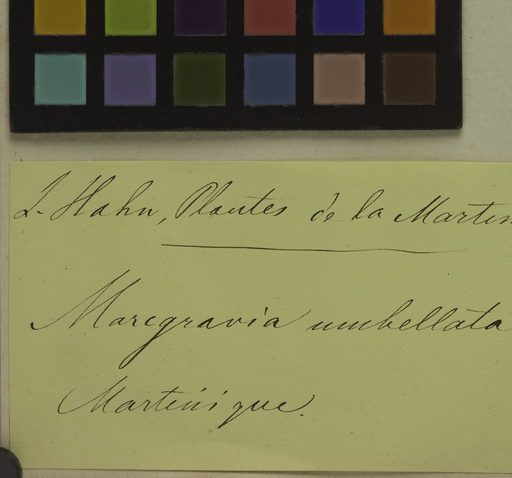 L. Hahn, Plantes de la Martin
Marcgravia umbellata
Martinique.